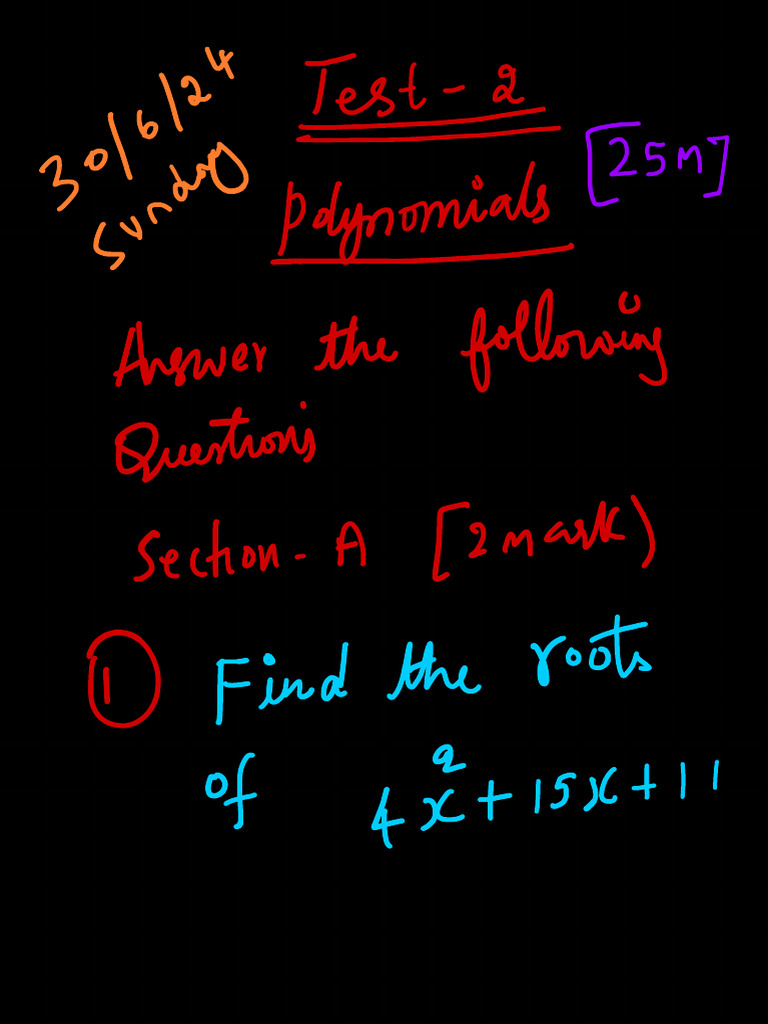 30/6/24
Sunday
Test-2
[25M]
Polynomials
Answer the following
Questions
Section-A [2mark)
① Find the roots
of 4x²+15x+11